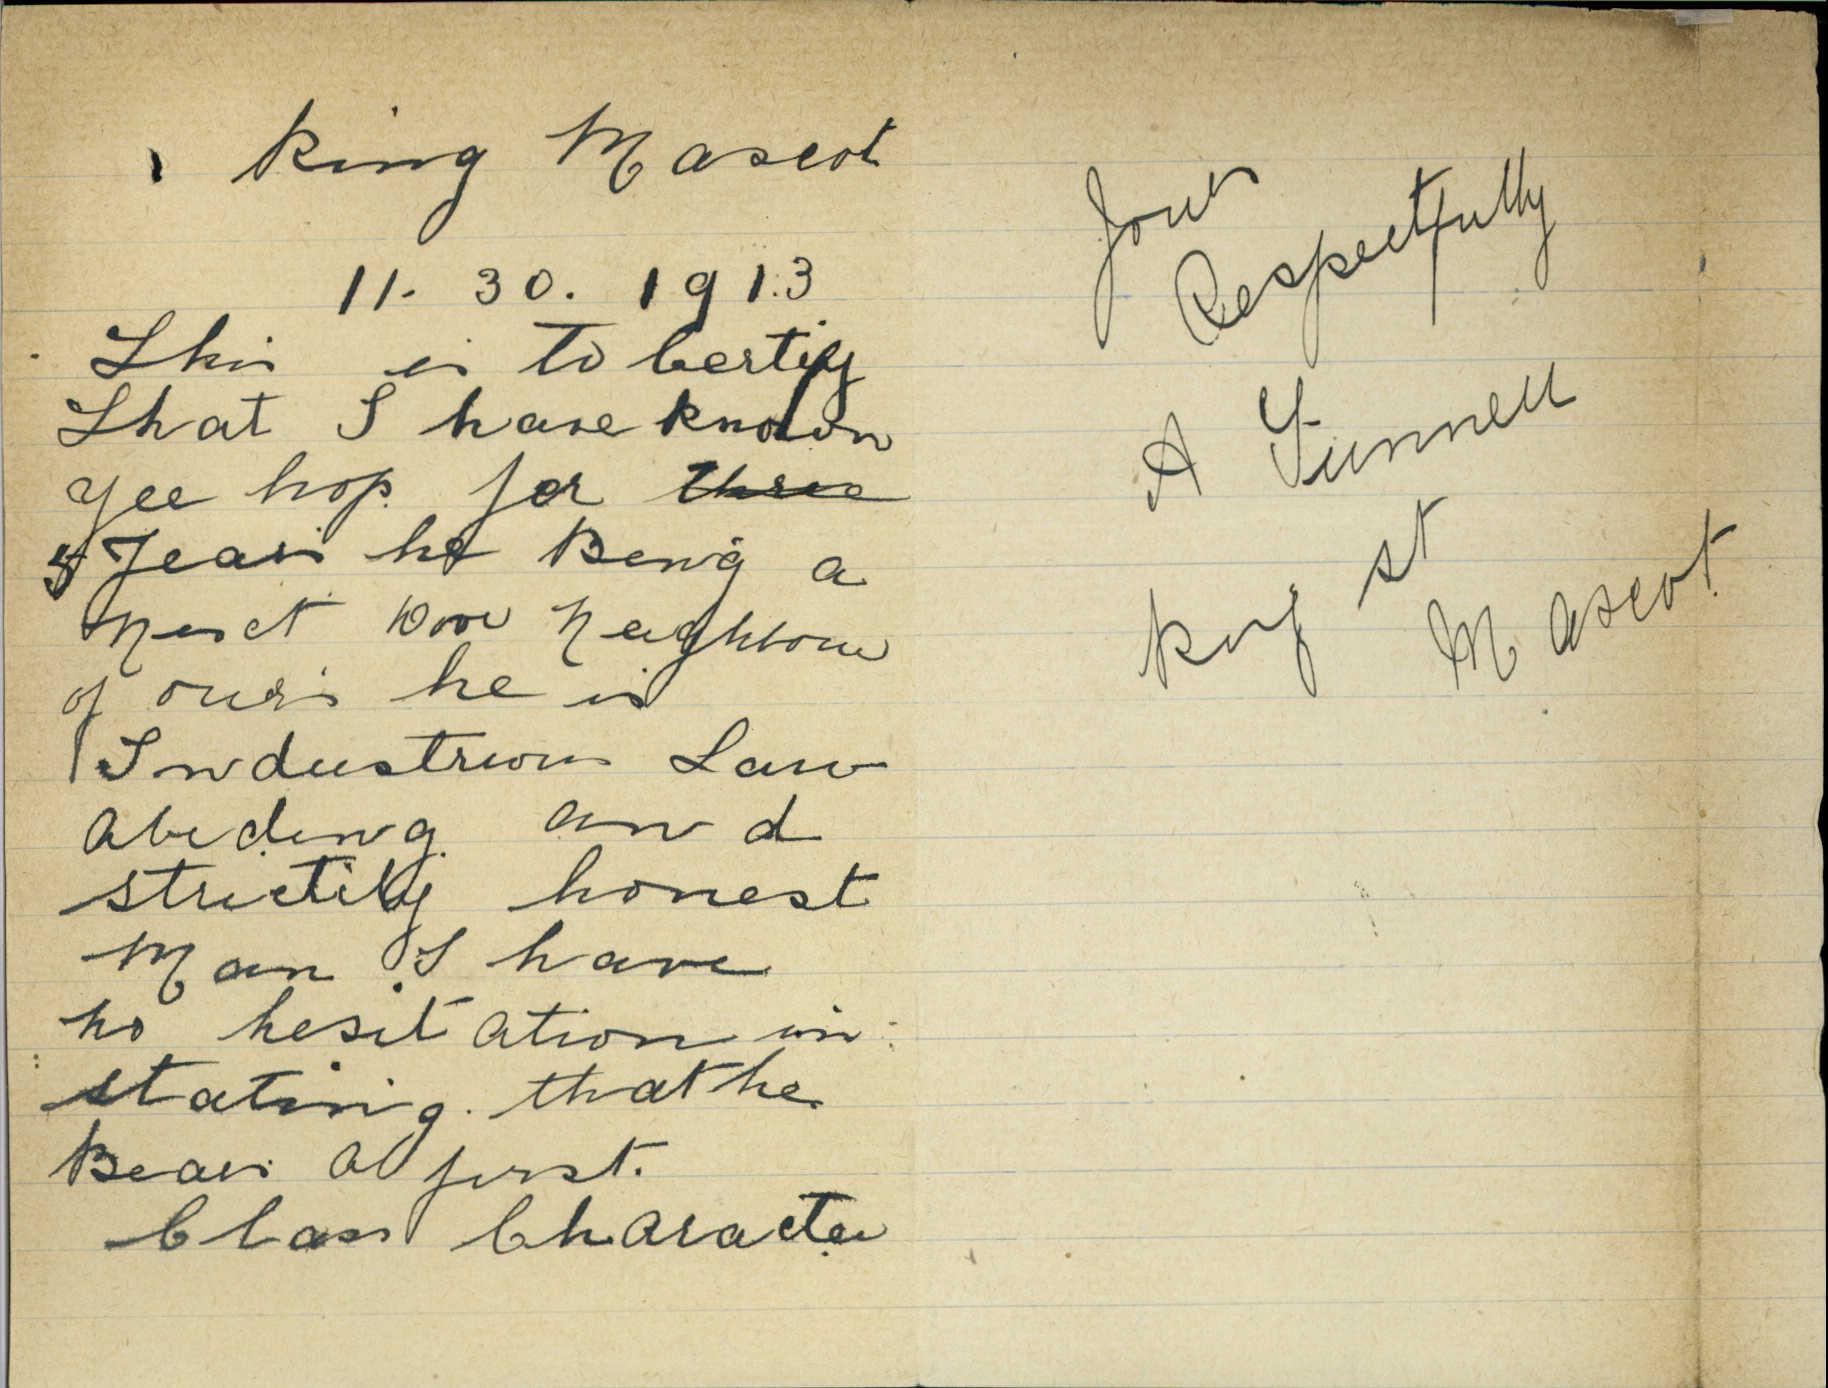 King Mascot
11. 30. 1913
This is to Certify
That I have known
yee hop. for three
5 Years he Being a
Next Door Neighbour
of ours he is
Industrious Law
Abiding and
strictily honest
Man I have
no hesitation in
stating. that he
Bears A first.
Class Character
Yours
Respectfully
A
King st
Mascot